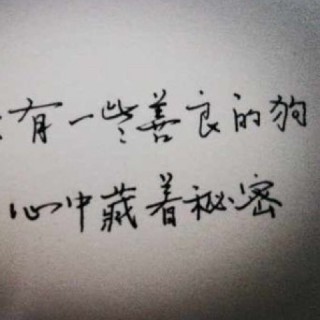 有一些善良的狗
心中藏着秘密